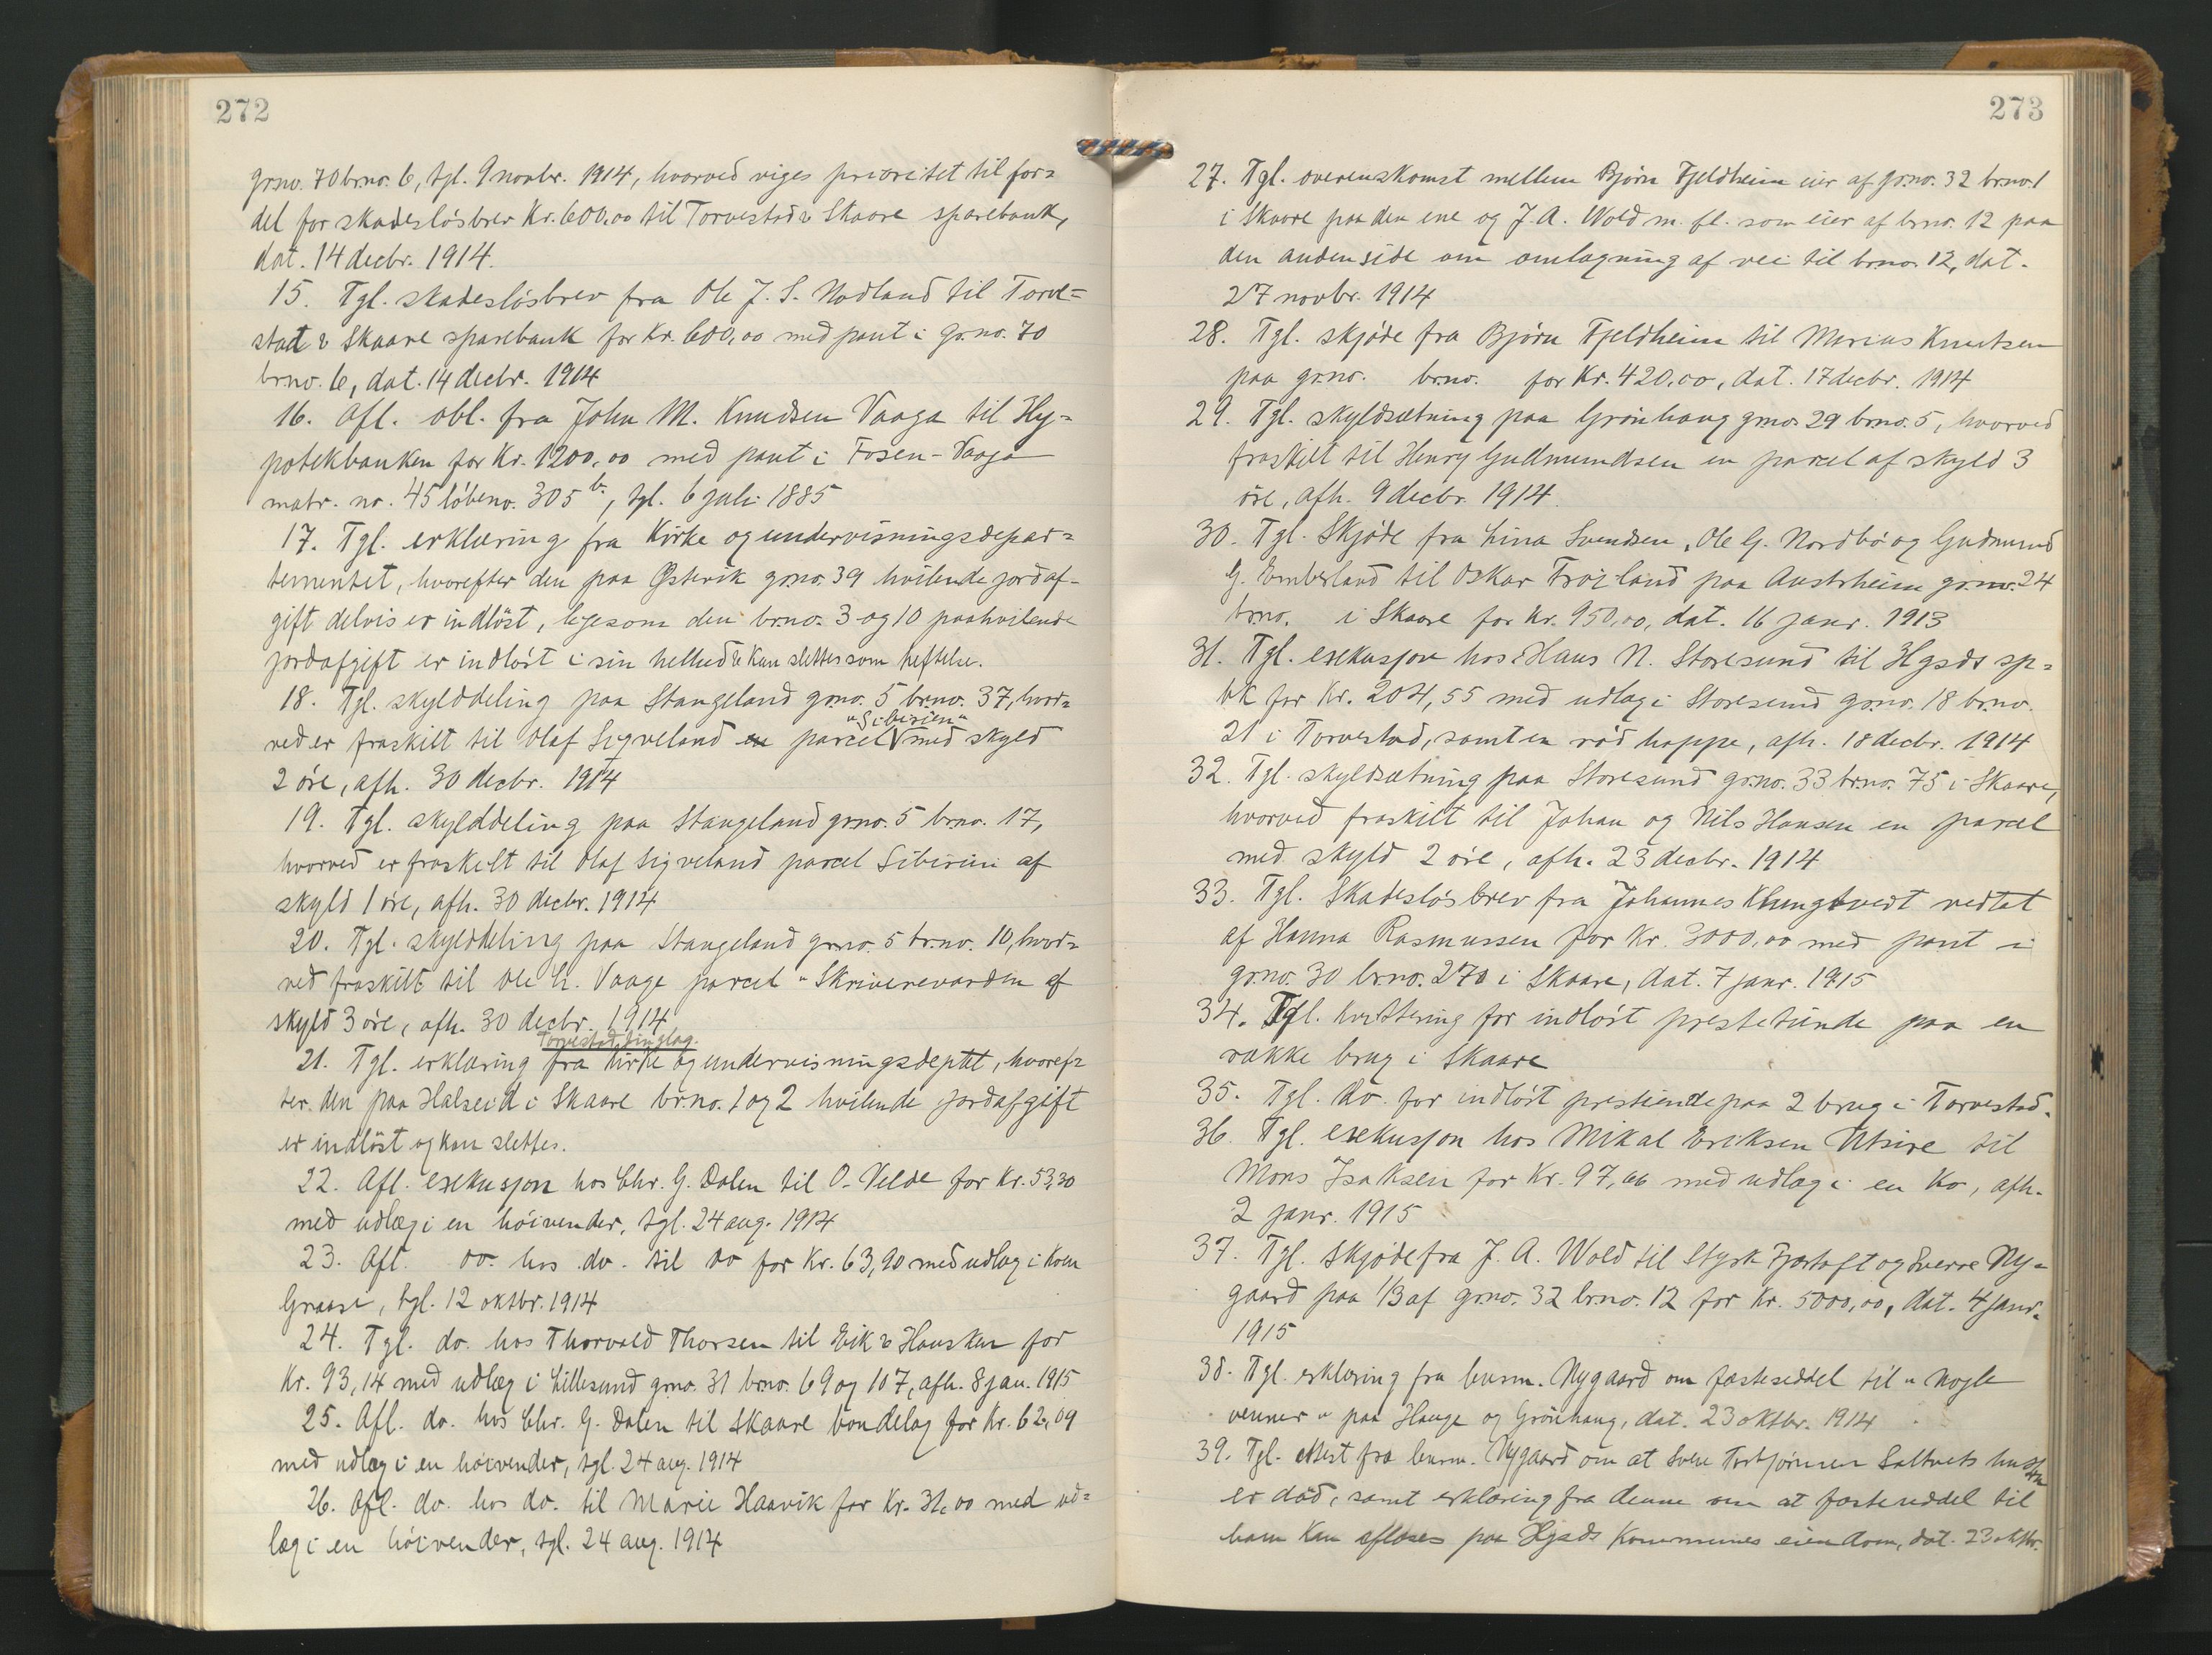 272
grno. 70 brno. 6, tgl. 9 novbr. 1914, hvorved viges prioritet til for=
del for skadesløsbrev Kr. 600,00 til Torvestad & Skaare sparebank,
dat. 14 decbr. 1914.
15. Tgl. skadesløsbrev fra Ole J. S. Nodland til Torve=
stad & Skaare sparebank for Kr. 600,00 med pant i gr.no. 70
br.no. 6, dat. 14 decbr. 1914
16. Afl. obl. fra John M. Knudsen Vaaga til Hy=
potekbanken for Kr. 1200,00 med pant i Fosen-Vaaga
matr. no. 45 løbeno. 305 b, tgl. 6 juli 1885
17. Tgl. erklæring fra Kirke og undervisningsdepar=
tementet, hvorefter den paa Østevik grno. 39 hvilende jordaf-
gift delvis er indløst, ligesom den brno. 3 og 10 paahvilende
jordafgift er indløst i sin helhed & kan slettes som heftelse.
18. Tgl. skylddeling paa Stangeland grno. 5 brno. 37, hvor=
ved er fraskilt til Olaf Sigveland en parcel "Sibirien" med skyld
2 øre, afh. 30 decbr. 1914
19. Tgl. skylddeling paa Stangeland grno. 5 brno. 17,
hvorved er fraskilt til Olaf Sigveland parcel Sibirien af
skyld 1 øre, afh. 30 decbr. 1914
20. Tgl. skylddeling paa Stangeland grno. 5 br.no. 10, hvor=
ved fraskilt til Ole H. Vaage parcel "Skriverevarden af
skyld 3 øre, afh. 30 decbr. 1914
Torvestad tinglag.
21. Tgl. erklæring fra Kirke og undervisningsdeptet, hvoref=
ter den paa Halseid i Skaare brno. 1 og 2 hvilende jordafgift
er indløst og kan slettes.
22. Afl. exekusjon hos Chr. G. Dalen til O. Velde for Kr. 53,30
med udlæg i en høivender, tgl. 24 aug. 1914
23. Afl. do. hos do. til do for Kr. 63,90 med udlæg i koen
Graase, tgl. 12 oktbr. 1914
24. Tgl. do. hos Thorvald Thorsen til Eik & Hausken for
Kr. 93,14 med udlæg i Lillesund grno. 31 brno. 69 og 107, afh. 8 jan. 1915
25. Afl. do. hos Chr. G. Dalen til Skaare bondelag for Kr. 62,09
med udlæg i en høivender, tgl. 24 aug. 1914
26. Afl. do. hos do. til Marie Haavik for Kr. 31,00 med ud=
læg i en høivender, tgl. 24 aug. 1914
273
27. Tgl. overenskomst mellem Bjørn Fjeldheim eier af gr.no. 32 brno. 1
i Skaare paa den ene og J. A. Wold m. fl. som eier af brno. 12 paa
den anden side om omlægning af vei til brno. 12, dat.
27 novbr. 1914
28. Tgl. skjøde fra Bjørn Fjeldheim til Marius Knutsen
paa gr.no. br.no. for Kr. 420,00, dat. 17 decbr. 1914
29. Tgl. skyldsætning paa Grønhaug grno. 29 brno. 5, hvorved
fraskilt til Henry Gudmundsen en parcel af skyld 3
øre, afh. 9 decbr. 1914.
30. Tgl. Skjøde fra Lina Svendsen, Ole G. Nordbø og Gudmund
G. Emberland til Oskar Frøiland paa Austrheim gr.no. 24
brno. i Skaare for Kr. 950,00, dat. 16 janr. 1913
31. Tgl. exekusjon hos Hans N. Storesund til Hgsds sp=
bk for Kr. 204,55 med udlæg i Storesund gr.no. 18 br.no.
21 i Torvestad, samt en rød hoppe, afh. 18 decbr. 1914
32. Tgl. skyldsætning paa Storesund gr.no. 33 br.no. 75 i Skaare,
hvorved fraskilt til Johan og Nils Hansen en parcel
med skyld 2 øre, afh. 23 decbr. 1914
33. Tgl. Skadesløsbrev fra Johannes Klungtvedt vedtat
af Hanna Rasmussen for Kr. 3000,00 med pant i
gr.no. 30 br.no. 270 i Skaare, dat. 7 janr. 1915
34. Tgl. kvittering for indløst prestetiende paa en
række brug i Skaare
35. Tgl. do. for indløst prestiende paa 2 brug i Torvestad.
36. Tgl. exekusjon hos Mikal Eriksen Utsire til
Mons Isaksen for Kr. 97,66 med udlæg i en ko, afh.
2 janr. 1915
37. Tgl. skjøde fra J. A. Wold til Styrk Fjærtoft og Sverre Ny=
gaard paa 1/3 af grno. 32 brno. 12 for Kr. 5000,00, dat. 4 janr.
1915
38. Tgl. erklæring fra lensm. Nygaard om fæsteseddel til "nogle
venner" paa Hauge og Grønhaug, dat. 23 oktbr. 1914
39. Tgl. attest fra lensm. Nygaard om at Svein Torbjørnsen Saltveits hustru
er død, samt erklæring fra denne om at fæsteseddel til
ham kan aflæses paa Hgsds Kommunes eiendom, dat. 23 oktbr.